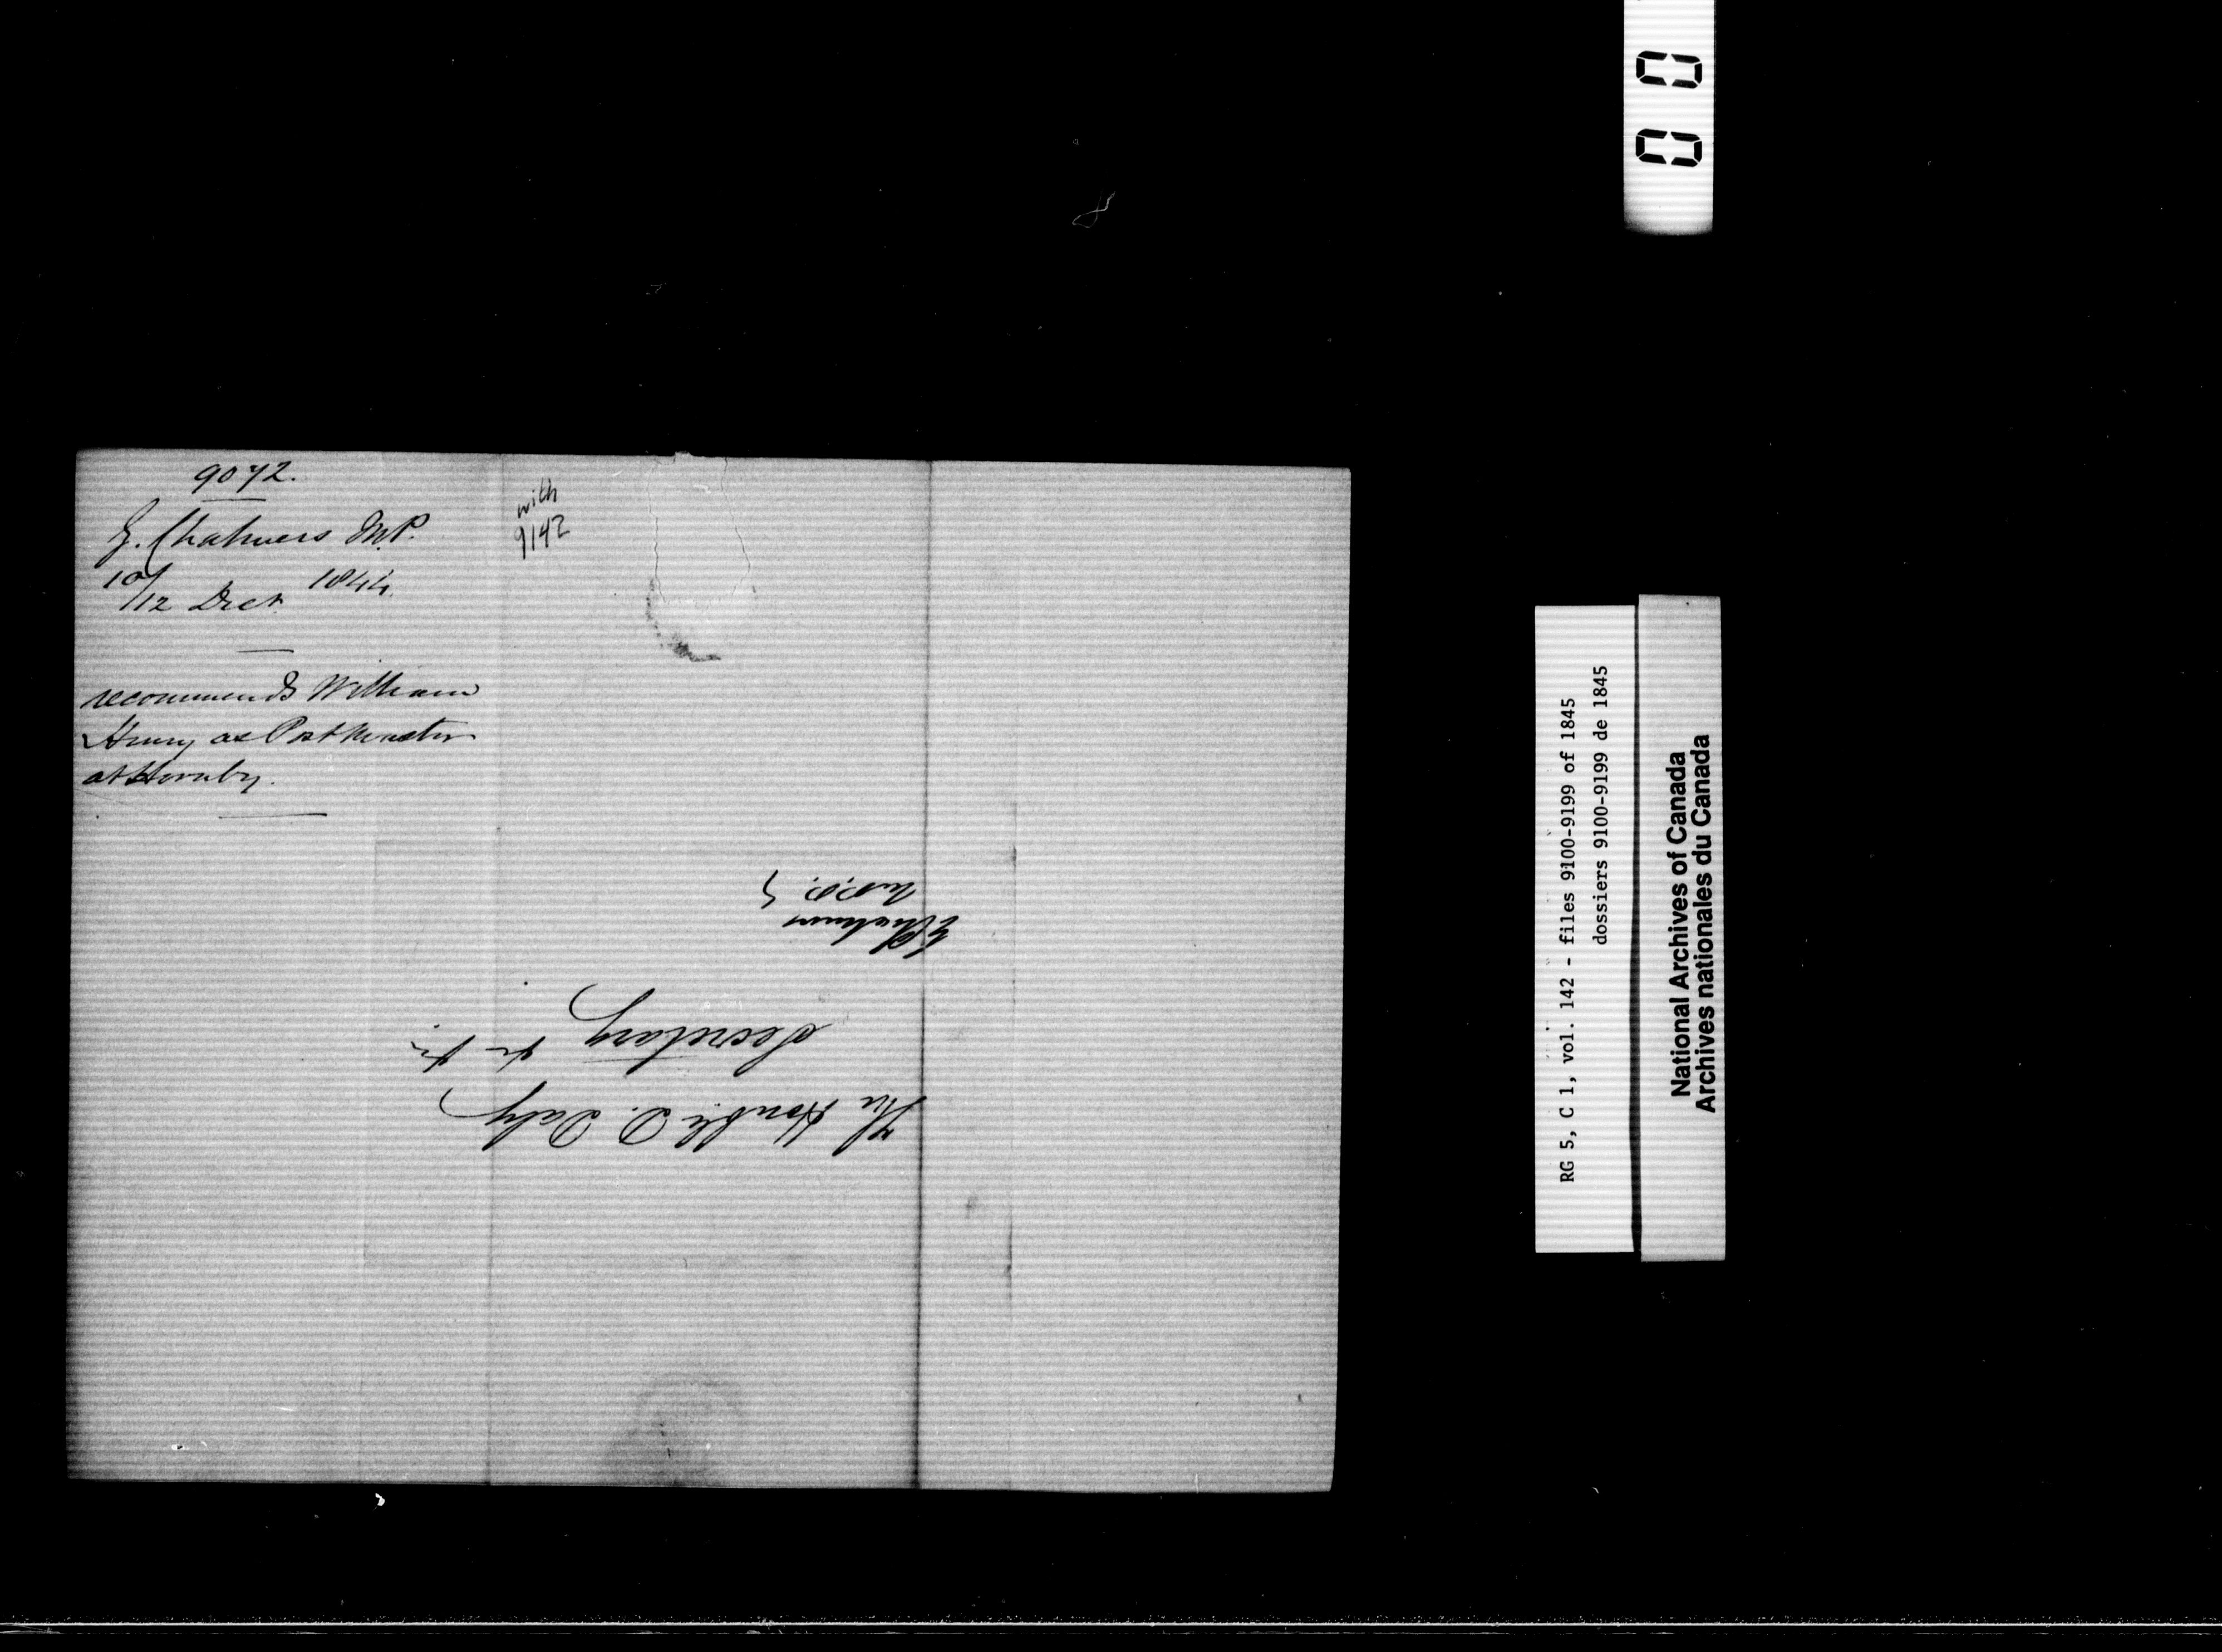 9072.
G. Chalmers M.P.
10/12 Decr. 1844.
recommends William
Henry as Postmaster
at Hornby.
with
9142
G Chalmers
M.P.P.
The Honble D. Daly
Secretary &c &c
RG 5, C 1, vol. 142 - files 9100-9199 of 1845
dossiers 9100-9199 de 1845
National Archives of Canada
Archives nationales du Canada
0 0